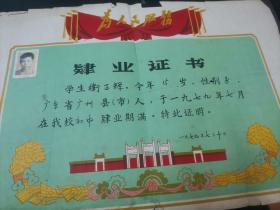 为人民服务
肄业证书
学生衡子辉，今年15岁，性别男，
广东省广州县(市)人，于一九七九年七月
在我校初中肄业期满，特此证明。
一九七九年七月十日